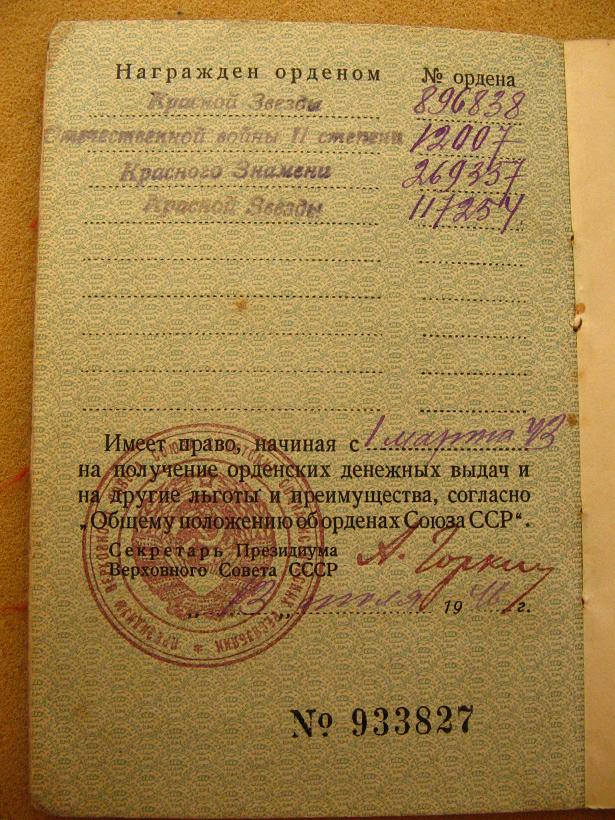 Награжден орденом № ордена
Красной Звезды 896838
Отечественной войны II степени 12007
Красного Знамени 269357
Красной Звезды 117257
Имеет право, начиная с 1 марта 43
на получение орденских денежных выдач и
на другие льготы и преимущества, согласно
„Общему положению об орденах Союза ССР“.
Секретарь Президиума
Верховного Совета СССР А. Горкин
„13„ июля 1946 г.
№ 933827